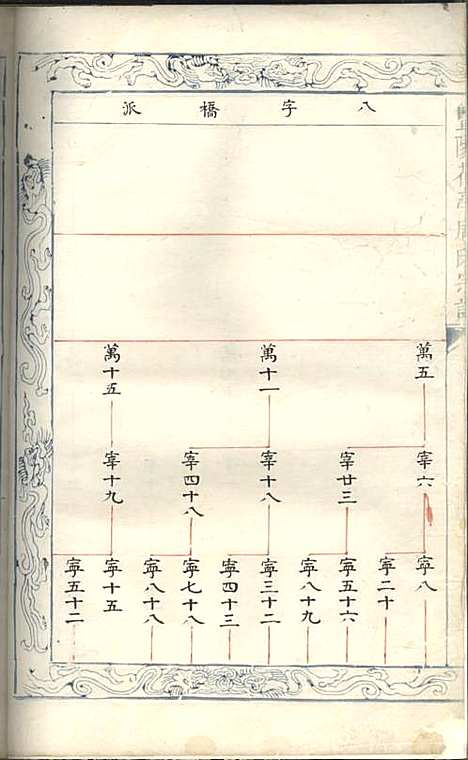 八字橋派
萬五
萬十一
萬十五
宰六
宰廿三
宰十八
宰四十八
宰十九
寧八
寧二十
寧五十六
寧八十九
寧三十二
寧四十三
寧七十八
寧八十八
寧十五
寧五十二